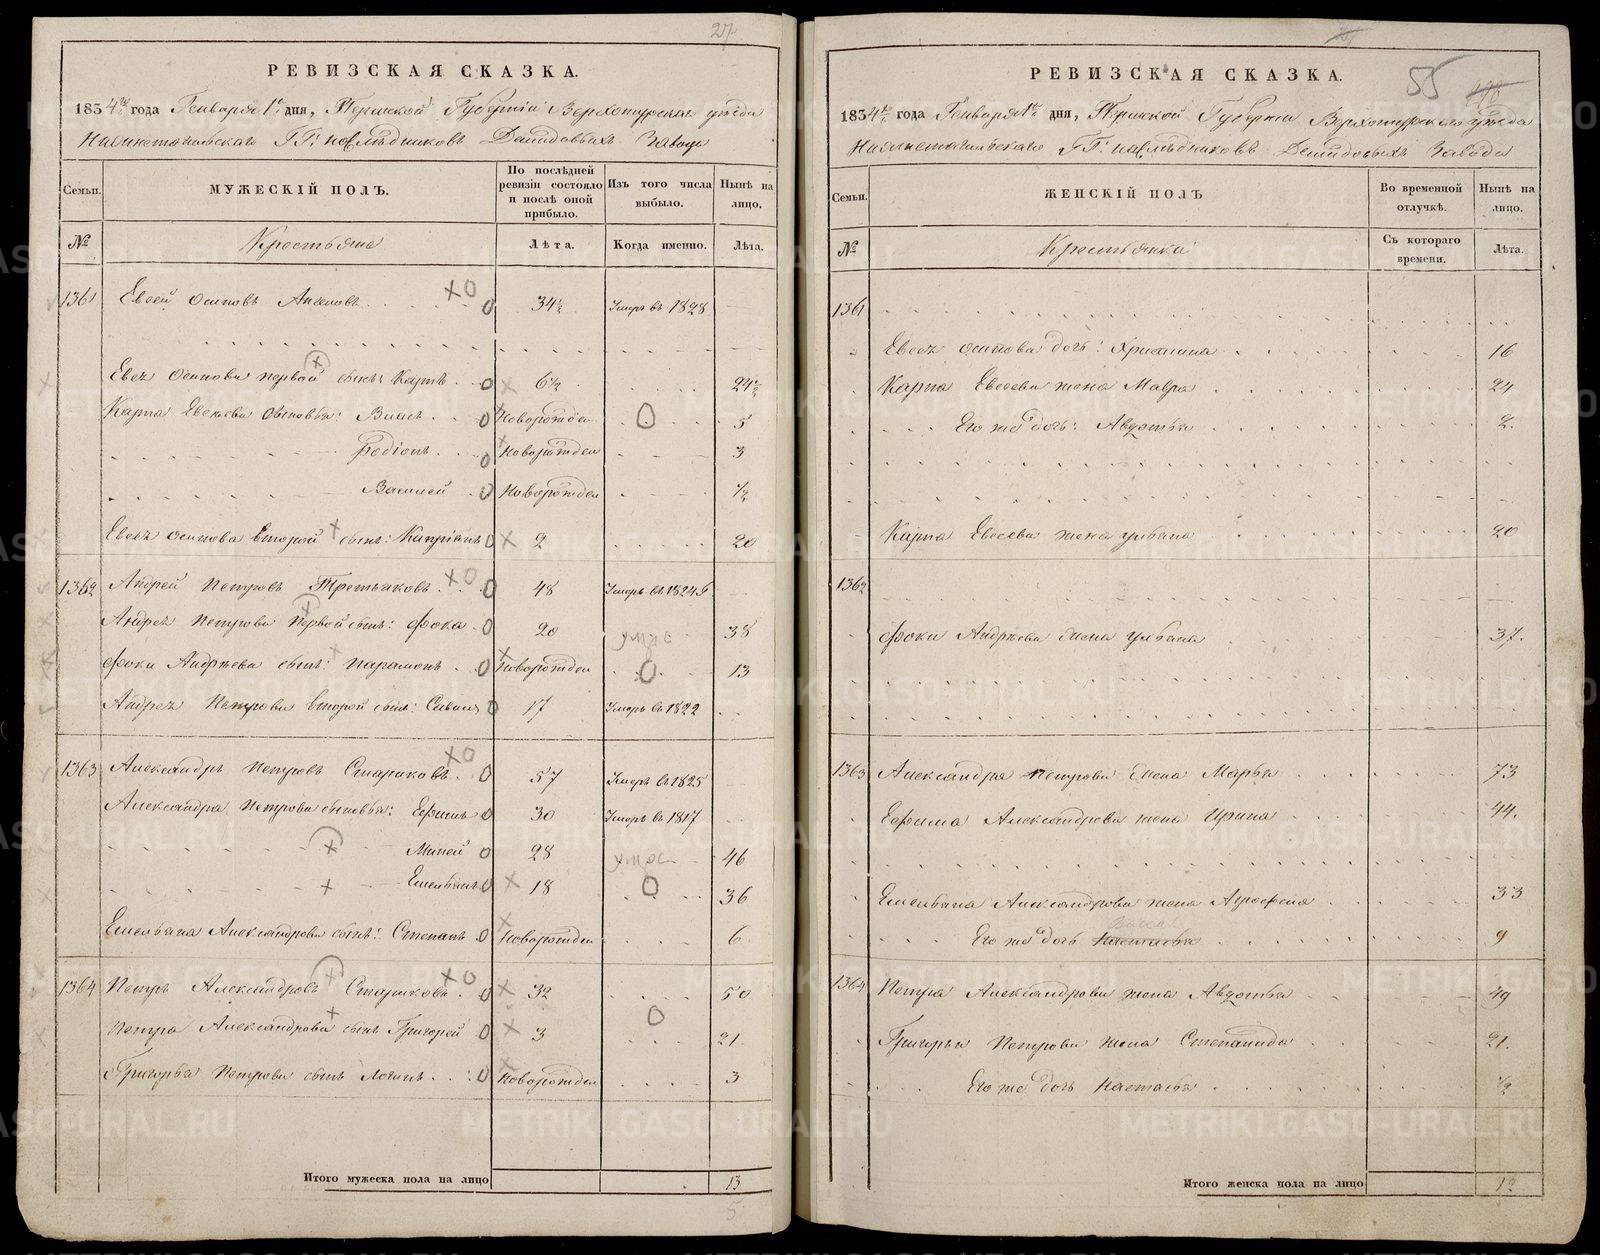 27
РЕВИЗСКАЯ СКАЗКА.
1834 года Генваря 1 дня, Пермской Губернии Верхотурскаго уезда
Нижнетагильскаго ГГ. наследниковъ Демидовыхъ Завода
Семьи.
МУЖЕСКІЙ ПОЛЪ.
По послѣдней ревизіи состояло и послѣ оной прибыло.
Изъ того числа выбыло.
Нынѣ на лицо.
№
Крестьяне
Лѣта.
Когда именно.
Лѣта.
1361 Евсей Осиповъ 34½ Умеръ въ 1828
Евсея Осипова первой сынъ Карпъ 6½ 24½
Карпа Евсеева сыновья: Новорожден 5
Родіонъ Новорожден 3
Василей Новорожден ½
Евсея Осипова второй сынъ: 2 20
1362 Андрей Петровъ Третьяковъ 48 Умеръ въ
Андрея Петрова Первой сынъ: Фока 20 умре 38
Фоки Андреева сынъ: Парамонъ Новорожден 13
Андрея Петрова второй сынъ: 17 Умеръ въ 1822
1363 Александръ Петровъ Стариковъ 57 Умеръ въ 1825
Александра Петрова сыновья: Ефимъ 30 Умеръ въ 1817
Миней 28 46
Емельянъ 18 36
Емельяна Александрова сынъ: Степанъ Новорожден 6
1364 Петръ Александровъ Стариковъ 32 50
Петра Александрова сынъ Григорей 3 21
Григорья Петрова сынъ Логинъ Новорожден 3
Итого мужеска пола на лицо 13
5
55
РЕВИЗСКАЯ СКАЗКА.
1834 года Генваря 1 дня, Пермской Губернии Верхотурскаго уезда
Нижнетагильскаго ГГ. наследниковъ Демидовыхъ Завода
Семьи.
ЖЕНСКІЙ ПОЛЪ
Во временной отлучкѣ.
Нынѣ на лицо.
№
Крестьянки
Съ котораго времени.
Лѣта.
1361
Евсея Осипова дочь: 16
Карпа Евсеева жена Мавра 24
Его же дочь: Авдотья 2
Карпа Евсеева жена Ульяна 20
1362
Фоки Андреева жена Ульяна 37
1363 Александра Петрова жена Марья 73
Ефима Александрова жена Ирина 44
Емельяна Александрова жена Агрофена 33
Его же дочь 9
1364 Петра Александрова жена Авдотья 49
Григорья Петрова жена Степанида 21
Его же дочь Настасья ½
Итого женска пола на лицо 12
METRIKI.GASO-URAL.RU